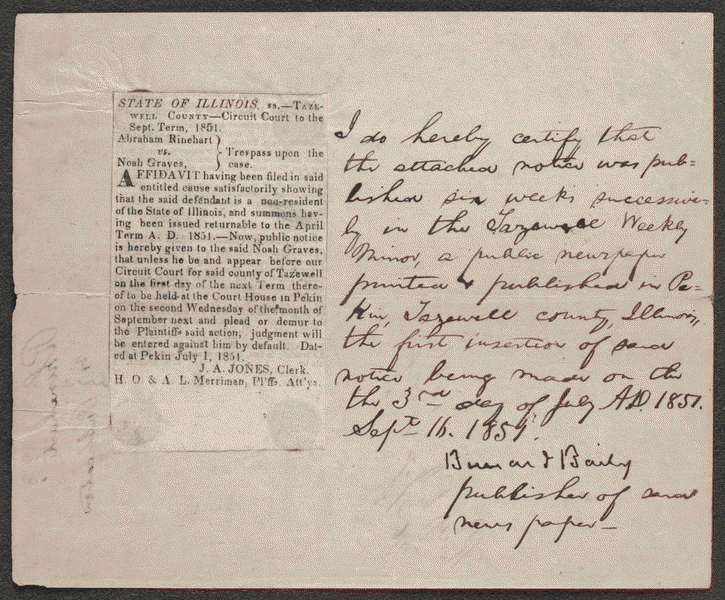 STATE OF ILLINOIS, ss.—TAZE-
WELL COUNTY—Circuit Court to the
Sept. Term, 1851.
Abraham Rinehart
vs.
Noah Graves,
Trespass upon the
case.
AFFIDAVIT having been filed in said
entitled cause satisfactorily showing
that the said defendant is a non-resident
of the State of Illinois, and summons hav-
ing been issued returnable to the April
Term A. D. 1851.—Now, public notice
is hereby given to the said Noah Graves,
that unless he be and appear before our
Circuit Court for said county of Tazewell
on the first day of the next Term there-
of to be held at the Court House in Pekin
on the second Wednesday of the month of
September next and plead or demur to
the Plaintiffs said action, judgment will
be entered against him by default. Dat-
ed at Pekin July 1, 1851.
J. A. JONES, Clerk.
H. O. & A. L. Merriman, Pl'ffs. Att'ys.
I do hereby certify that
the attached notice was pub-
lished six weeks successive-
ly in the Tazewell Weekly
Mirror, a public newspaper
printed & published in Pe-
kin, Tazewell county, Illinois,
the first insertion of said
notice being made on the
the 3rd day of July A.D. 1851.
Sept. 16. 1851.
Bailey
publisher of said
news paper—